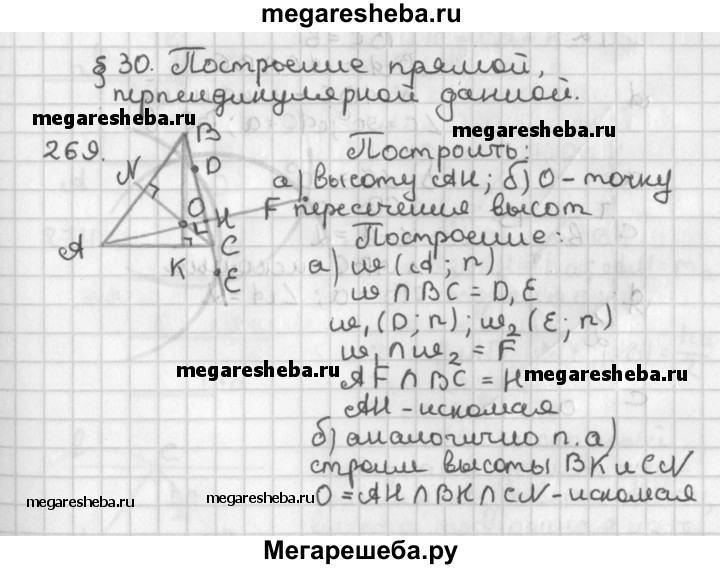 megaresheba.ru
§ 30. Построение прямой,
перпендикулярной данной.
megaresheba.ru
megaresheba.ru
269.
B
N
D
O
H
F
A
K
C
E
Построить:
а) высоту AH; б) O - точку
пересечения высот
Построение:
а) ω (A; r)
ω ∩ BC = D, E
ω₁ (D; r); ω₂ (E; r)
ω₁ ∩ ω₂ = F
megaresheba.ru
AF ∩ BC = H
megaresheba.ru
AH - искомая
б) аналогично п. а)
строим высоты BK и CN
megaresheba.ru
megaresheba.ru
O = AH ∩ BK ∩ CN - искомая
Мегарешеба.ру